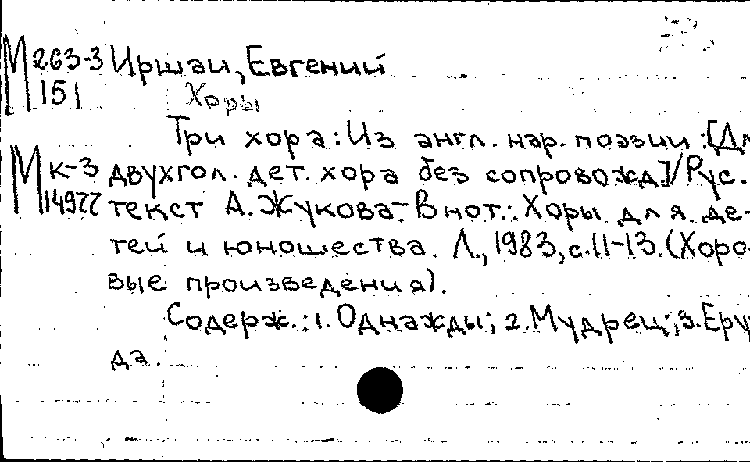 М 263-3 Иршаи, Евгений
151 Хоры
Три хора: Из англ. нар. поэзии: [Дл
М к-3 двухгол. дет. хора без сопровожд.]/Рус.
14977 текст А. Жукова.- В нот.: Хоры для де-
тей и юношества. Л., 1983, с. 11-13. (Хоро-
вые произведения).
Содерж.: 1. Однажды; 2. Мудрец; 3. Еру
да.